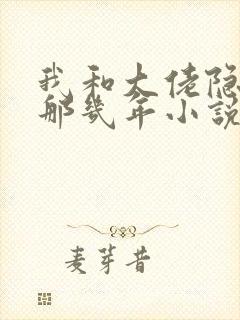 我和大佬隐
那几年小说
麦芽昔